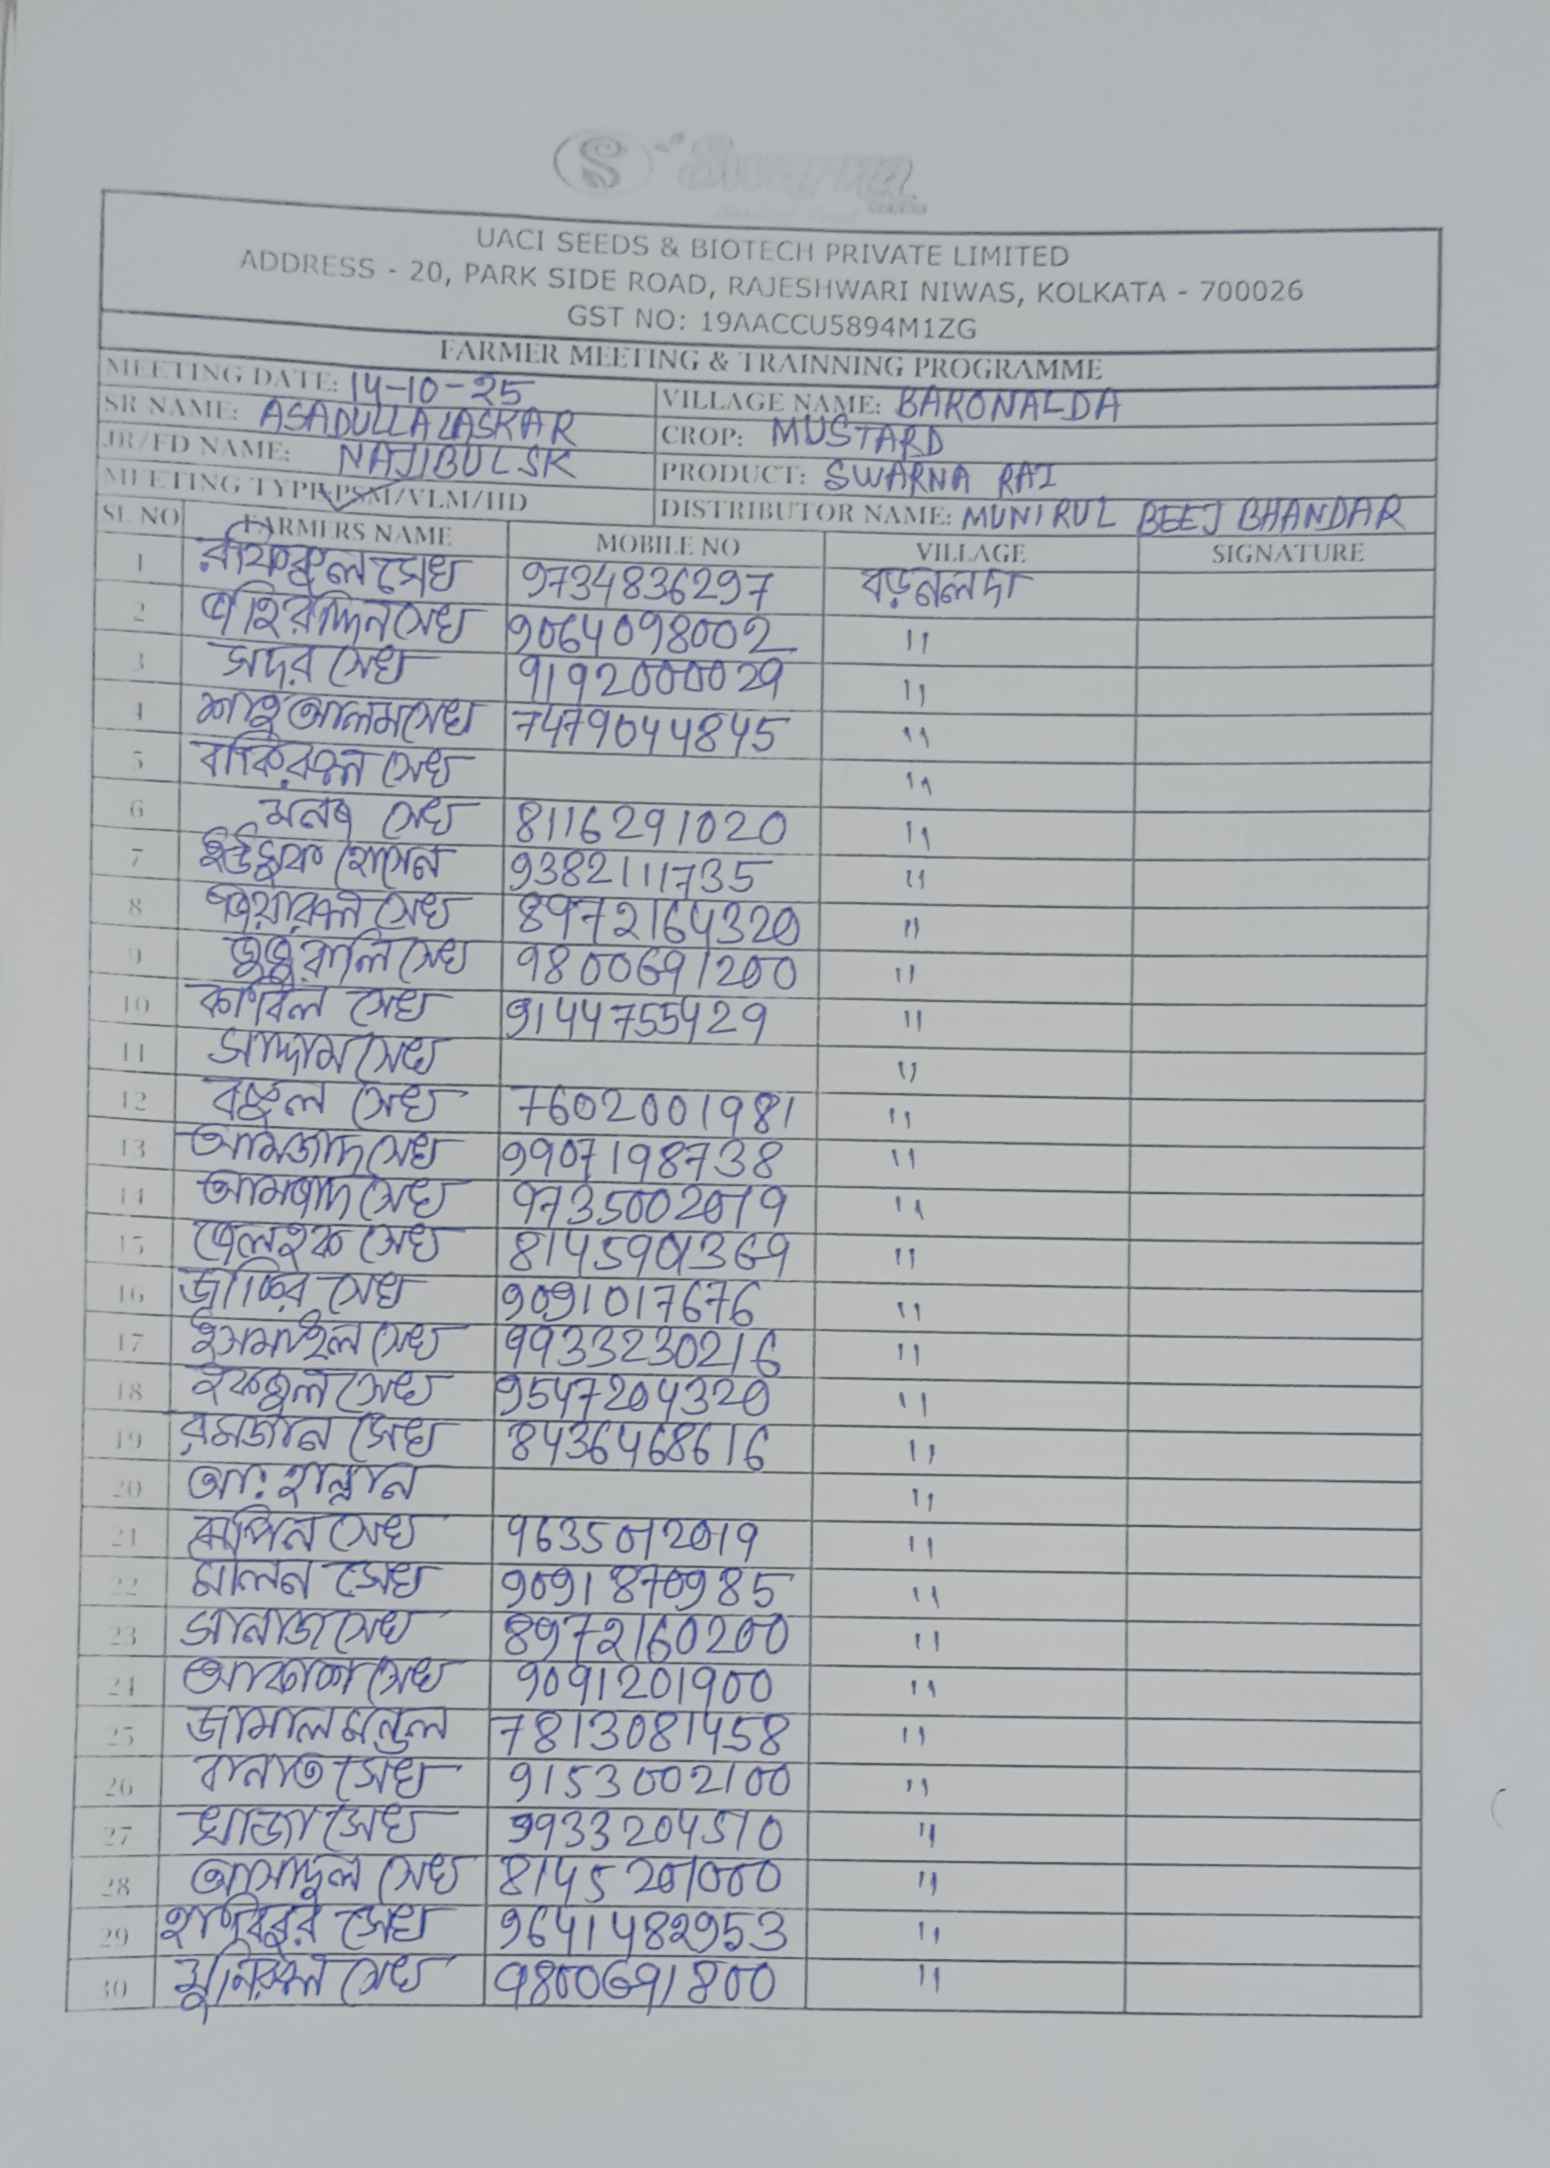 S Swarna
UACI SEEDS & BIOTECH PRIVATE LIMITED
ADDRESS - 20, PARK SIDE ROAD, RAJESHWARI NIWAS, KOLKATA - 700026
GST NO: 19AACCU5894M1ZG
FARMER MEETING & TRAINNING PROGRAMME
MEETING DATE: 14-10-25 VILLAGE NAME: BARONALDA
SR NAME: ASADULLA LASKAR CROP: MUSTARD
JR/FD NAME: NAJIBUL SK PRODUCT: SWARNA RAI
MEETING TYPE: PSM/VLM/HD DISTRIBUTOR NAME: MUNIRUL BEEJ BHANDAR
SL NO FARMERS NAME MOBILE NO VILLAGE SIGNATURE
1 রফিকুল সেখ 9734836297 বড়নলদা
2 সেখ 9064098002 "
3 সদর সেখ 9192000029 "
4 আলম সেখ 7479044845 "
5 সেখ "
6 সেখ 8116291020 "
7 হোসেন 9382111735 "
8 সেখ 8972164320 "
9 সেখ 9800691200 "
10 সেখ 9144755429 "
11 সাদ্দাম সেখ "
12 সেখ 7602001981 "
13 আমজাদ সেখ 9907198738 "
14 সেখ 9735002019 "
15 সেখ 8145901369 "
16 সেখ 9091017676 "
17 ইসমাইল সেখ 9933230216 "
18 সেখ 9547204320 "
19 রমজান সেখ 8436468616 "
20 আ: হান্নান "
21 সেখ 9635012019 "
22 মালন সেখ 9091870985 "
23 সেখ 8972160200 "
24 আকাশ সেখ 9091201900 "
25 জামাল মন্ডল 7813081458 "
26 সেখ 9153002100 "
27 খাজা সেখ 9933204510 "
28 আসাদুল সেখ 8145201000 "
29 হাবিবুর সেখ 9641482953 "
30 মুনিরুল সেখ 9800691800 "